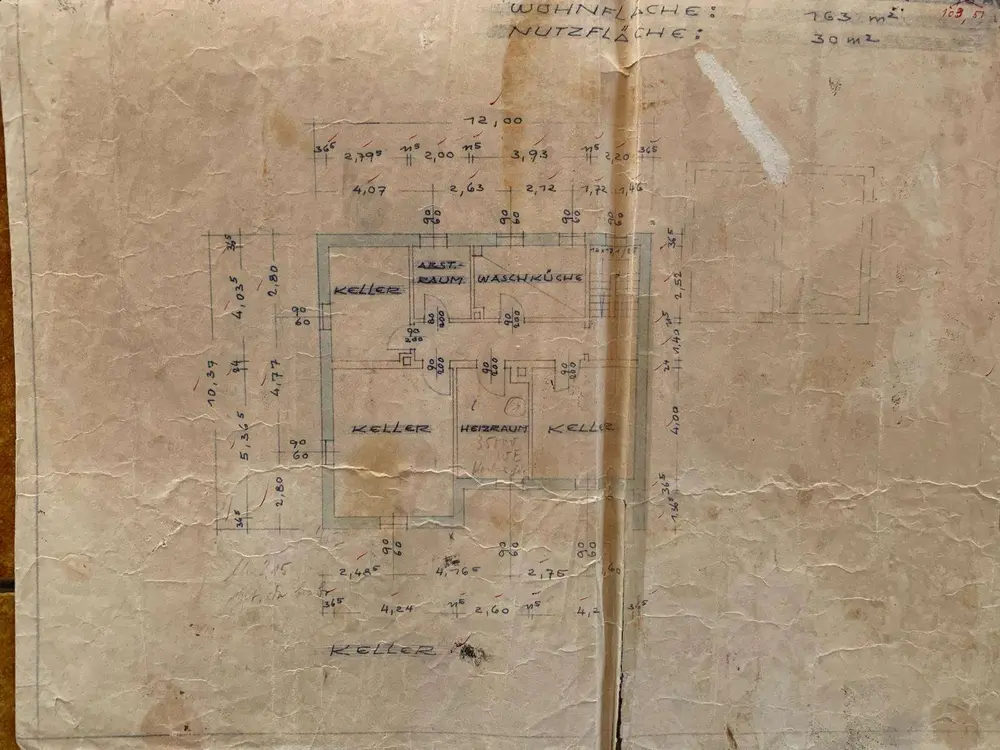 WOHNFLÄCHE: 163 m²
NUTZFLÄCHE: 30 m²
12,00
36⁵ 2,79⁵ 11⁵ 2,00 11⁵ 3,93 11⁵ 2,20 36⁵
4,07 2,63 2,12 1,72 1,46
90 60 90 60 90 60 90 60
KELLER
ABST.-
RAUM
WASCHKÜCHE
80 200
90 200
90 200
90 200
90 200
KELLER
HEIZRAUM
KELLER
10,37
36⁵ 4,03⁵ 24 5,36⁵ 36⁵
2,80 4,77 2,80
36⁵ 2,52 11⁵ 1,40 24 4,00 36⁵
90 60 90 60 90 60
2,48⁵ 4,76⁵ 2,75
36⁵ 4,24 11⁵ 2,60 11⁵ 36⁵
KELLER